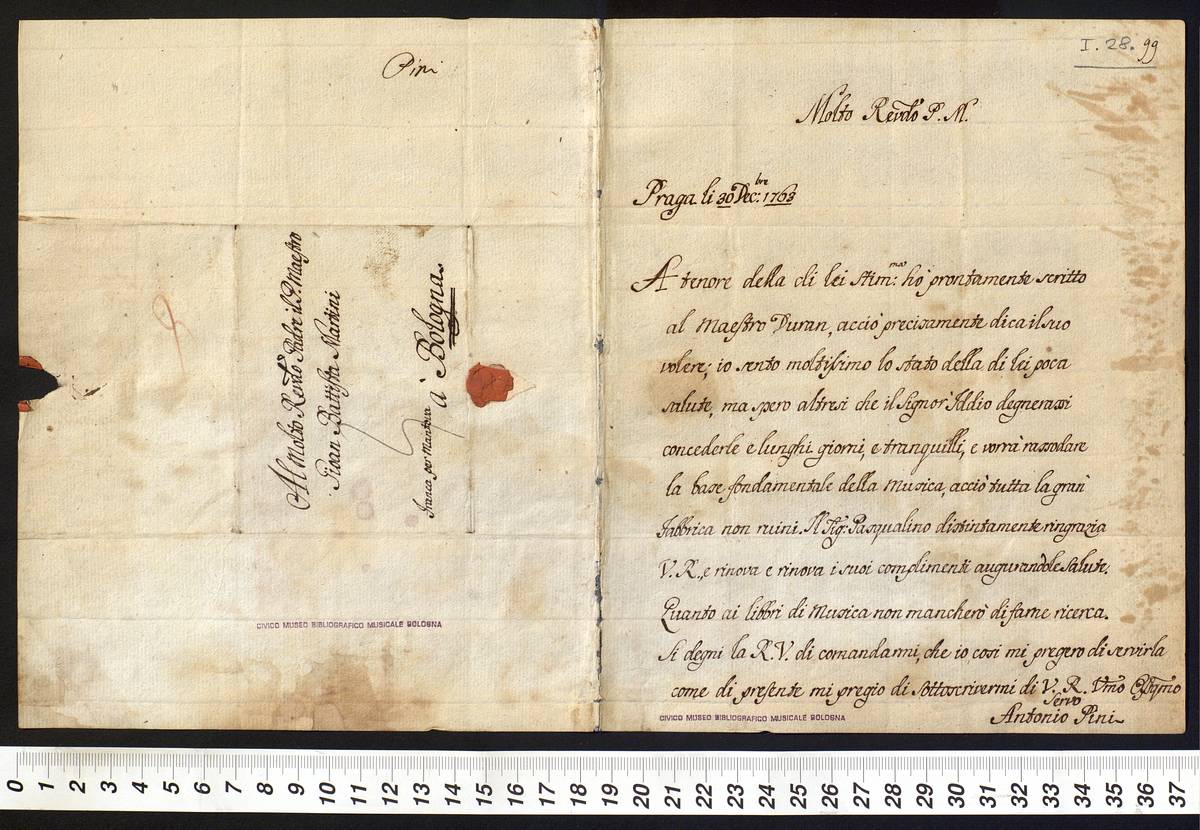 Pini
Al Molto Revdo Padre il P. Maestro
Gioan Battista Martini
franca per Mantova
à Bologna.
CIVICO MUSEO BIBLIOGRAFICO MUSICALE BOLOGNA
I. 28. 99
Molto Revdo P. M.
Praga li 30 Dec:bre 1763
A tenore della di lei stim:ma ho prontamente scritto
al Maestro Duran, acciò precisamente dica il suo
volere; io sento moltissimo lo stato della di lei poca
salute, ma spero altresi che il Signor Iddio degnerassi
concederle e lunghi giorni, e tranquilli, e vorrà rassodare
la base fondamentale della Musica, acciò tutta la gran
fabbrica non ruini. Il Sig: Pasqualino distintamente ringrazia
V. R., e rinova e rinova i suoi complimenti augurandole Salute.
Quanto ai libbri di Musica non mancherò di farne ricerca.
Si degni la R. V. di comandarmi, che io cosi mi pregero di servirla
come di presente mi pregio di sottoscrivermi di V. R. Umo
Servo
Antonio Pini
CIVICO MUSEO BIBLIOGRAFICO MUSICALE BOLOGNA
0 1 2 3 4 5 6 7 8 9 10 11 12 13 14 15 16 17 18 19 20 21 22 23 24 25 26 27 28 29 30 31 32 33 34 35 36 37